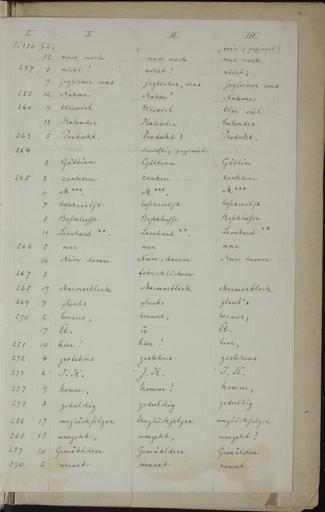 I. I. II. III.
12 nun noch nun noch nun noch
257 8 nicht! nicht! nicht;
9 jeglicher was jeglicher, was jeglicher was
258 12 Nahme Nahm' Nahme
260 9 Wieviel Wieviel Wie viel
11 Kalender Kalender Calender
263 5 Produkt. Produkt? Produkt.
264
8 Göttinn Göttinn Göttin
265 2 zankten zanken zankten
6 M*** M*** M***
7 beschreibst beschreibst beschreibst
8 Beschlusse Beschlusse Beschlusse
11 Leonhard **. Leonhard **. Leonhard **.
266 2 nur nur nur
16 Nein davon Nein, davon Nein davon
267 5 schrecklichen
268 19 Marmorblock Marmorblock Marmorblock
269 7 glaubs glaubs glaub's
270 2 heraus, heraus, heraus;
17 Ü. ü Ü.
271 10 hier! hier! hier,
272 4 gestehens gestehens gestehens
273 6 J. K. J. K. J. K.
277 9 komm, komm! komm,
278 3 geduldig geduldig geduldig
286 17 unglückseligen Unglückseligen unglückseligen
288 12 umgeht, umgeht, umgeht!
289 20 Gemählden Gemählden Gemälden
290 2 nennet nennet nennt